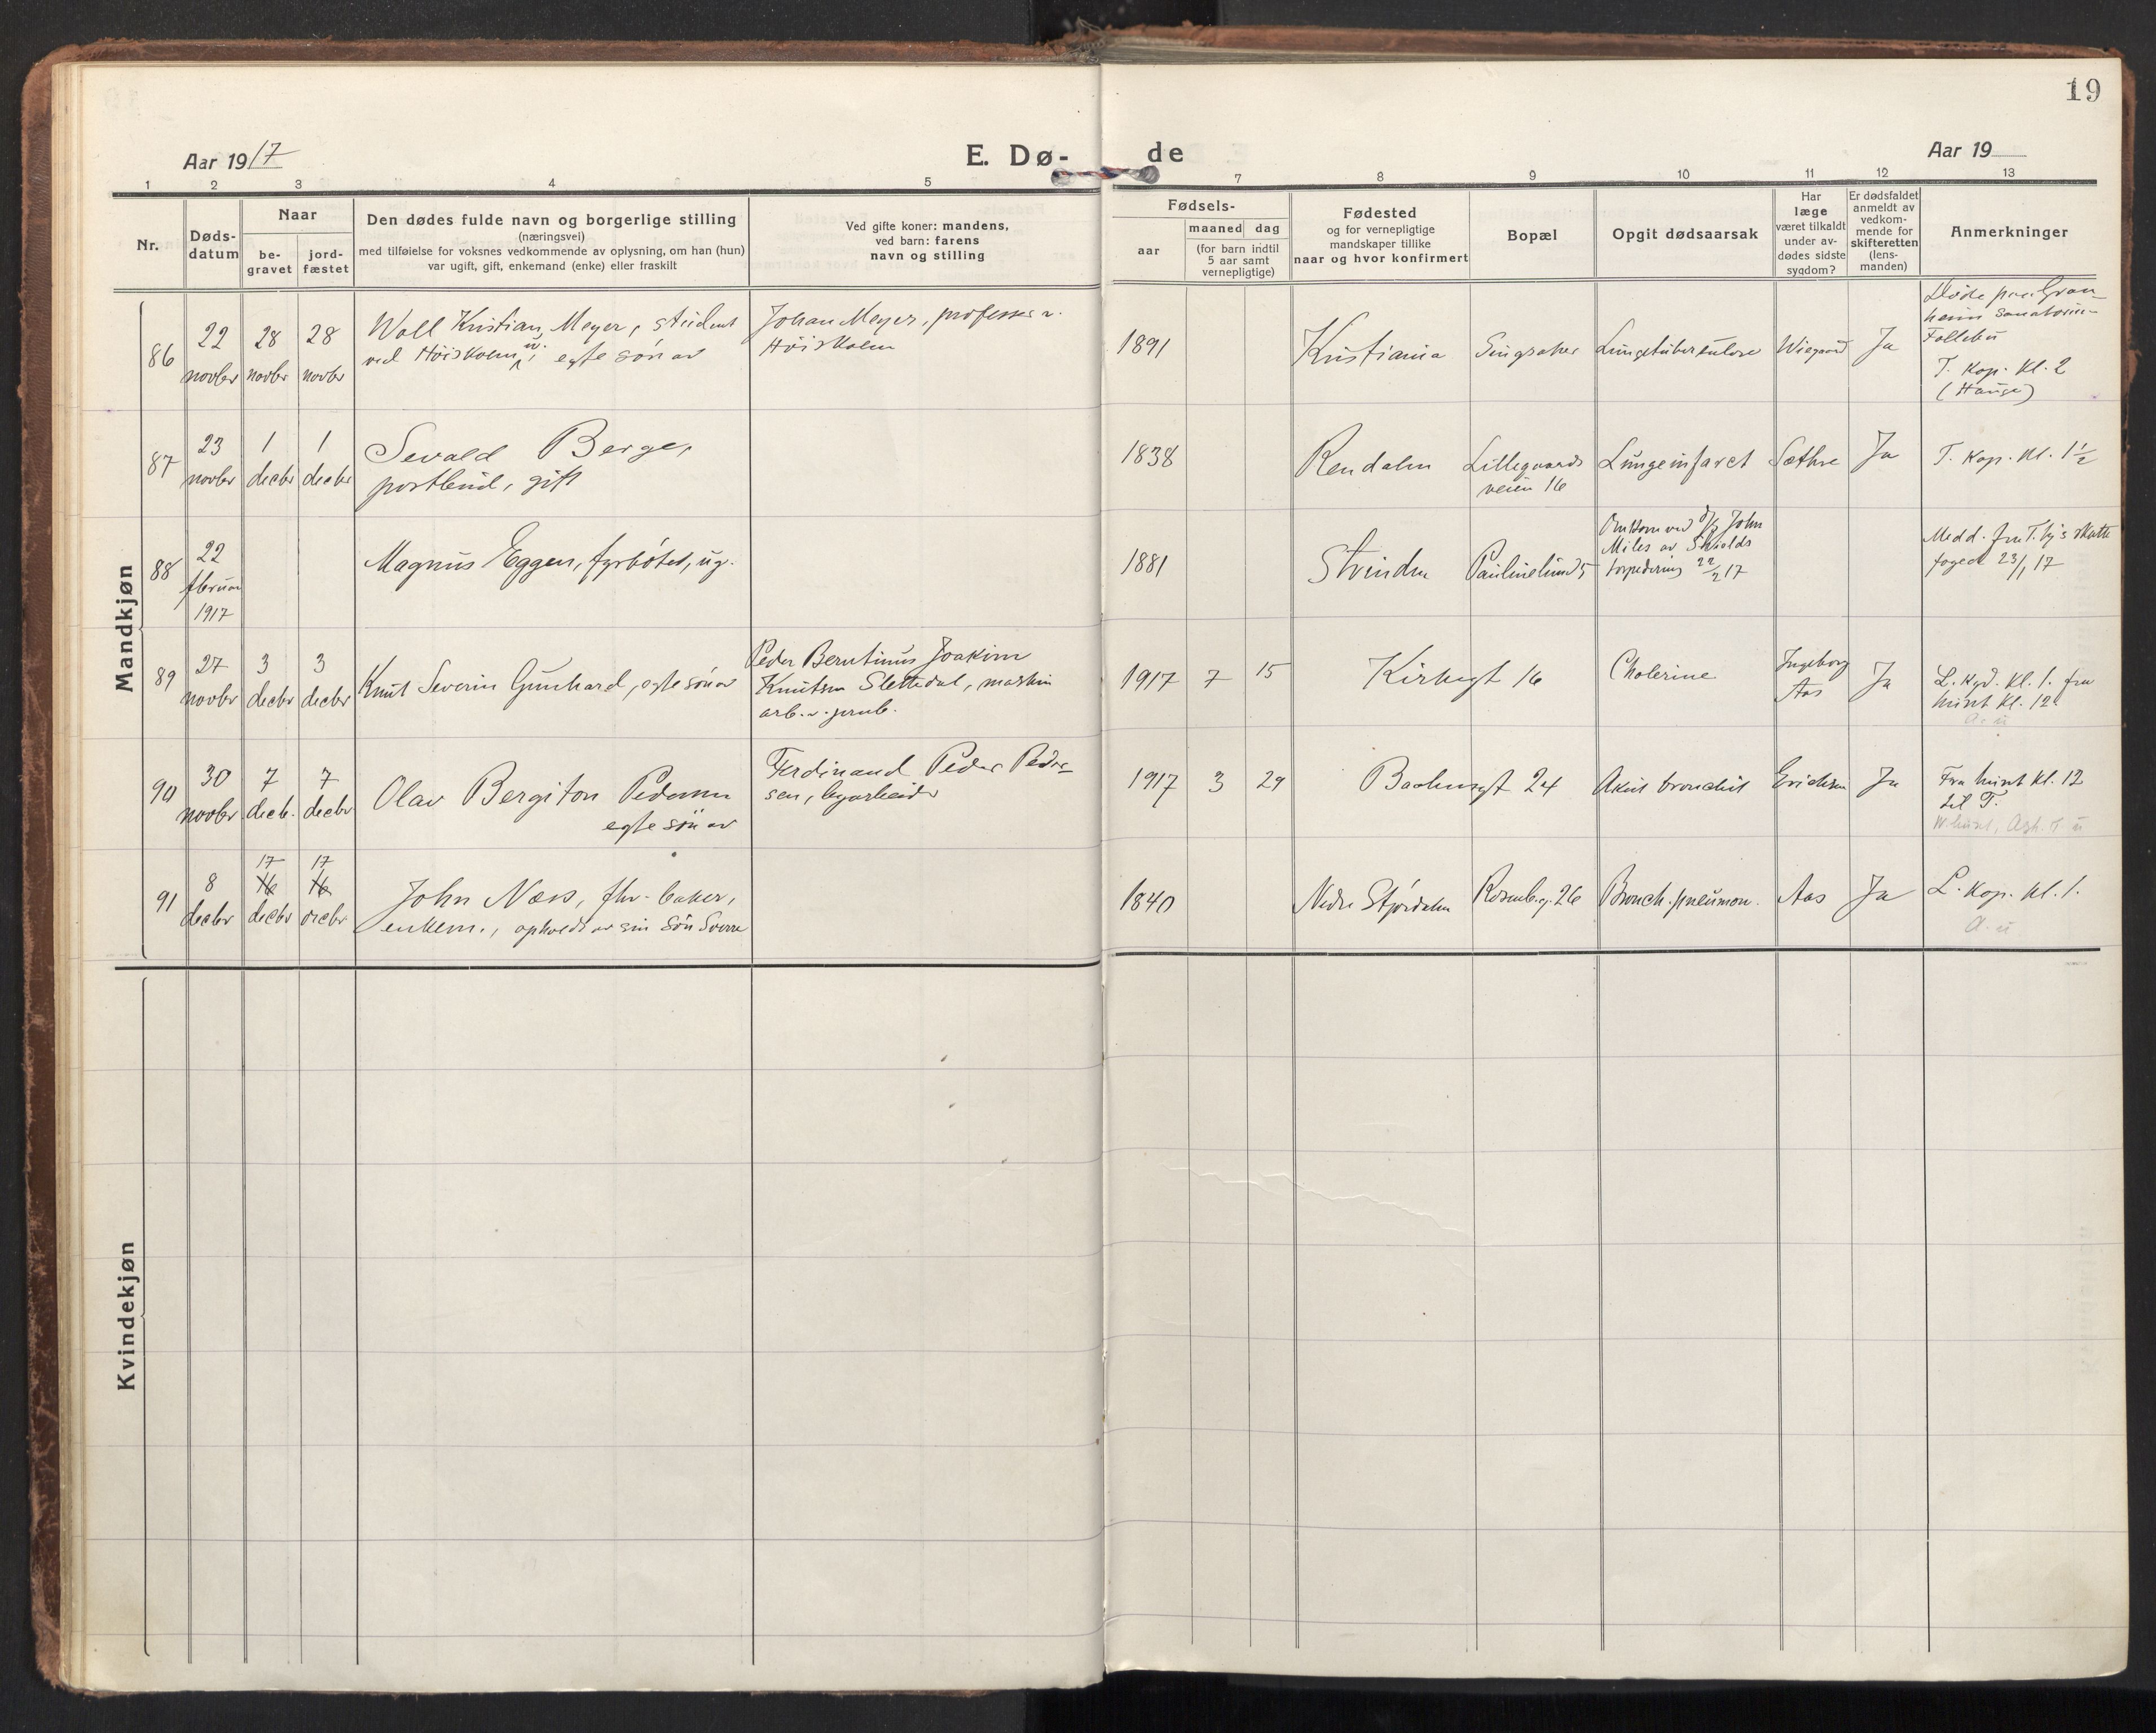 19
Aar 1917
E. Dø-
de
Aar 19
1 2 3 4 5 7 8 9 10 11 12 13
Nr.
Døds-
datum
Naar
be-
gravet
jord-
fæstet
Den dødes fulde navn og borgerlige stilling
(næringsvei)
med tilføielse for voksnes vedkommende av oplysning, om han (hun)
var ugift, gift, enkemand (enke) eller fraskilt
Ved gifte koner: mandens,
ved barn: farens
navn og stilling
Fødsels-
aar
maaned dag
(for barn indtil
5 aar samt
vernepligtige)
Fødested
og for vernepligtige
mandskaper tillike
naar og hvor konfirmert
Bopæl
Opgit dødsaarsak
Har
læge
været tilkaldt
under av-
dødes sidste
sygdom?
Er dødsfaldet
anmeldt av
vedkom-
mende for
skifteretten
(lens-
manden)
Anmerkninger
Mandkjøn
86
22
novbr
28
novbr
28
novbr
Woll Kristian Meyer, student
ved Høiskolen, u. egte søn av
Johan Meyer, professor v.
Høiskolen
1891
Kristiania
Singsaker
Lungetuberkulose
Wiegaard
Ja
Døde paa Gran-
heim sanatorium
Follebu
T. kap. kl. 2
(Hauge)
87
23
novbr
1
decbr
1
decbr
Sevald Berge,
postbud, gift
1838
Rendalen
Lillegaards
veien 16
Lungeinfarct
Sæthre
Ja
T. kap. kl. 1½
88
22
februar
1917
Magnus Eggen, fyrbøter, ug.
1881
Strinda
Paulinelund 5
Omkom ved d/s John
Miles av Shields
torpedering 22/2 17
Medd. fra T.bys skatte
foged 23/1 17
89
27
novbr
3
decbr
3
decbr
Knut Severin Gunhard, egte søn av
Peder Berntinus Joakim
Knutsen Slettedal, maskin
arb. v. jernb.
1917 7 15
Kirkegt 16
Cholerine
Ingeborg
Aas
Ja
L. kgd. kl. 1. fra
huset kl. 12
A. u
90
30
novbr
7
decb.
7
decbr
Olav Bergiton Pedersen
egte søn av
Ferdinand Peder Peder-
sen, byarbeider
1917 3 29
Baklandsgt 24
Akut bronchit
Erichsen
Ja
Fra huset kl. 12
til T.
91
8
decbr
17
16
decbr
17
16
decbr
John Næss, fhv. baker,
enkem., opholdt av sin søn Sverre
1840
Nedre Stjørdalen
Rosenb.g. 26
Bronch. pneumon.
Aas
Ja
L. kap. kl. 1.
A. u
Kvindekjøn